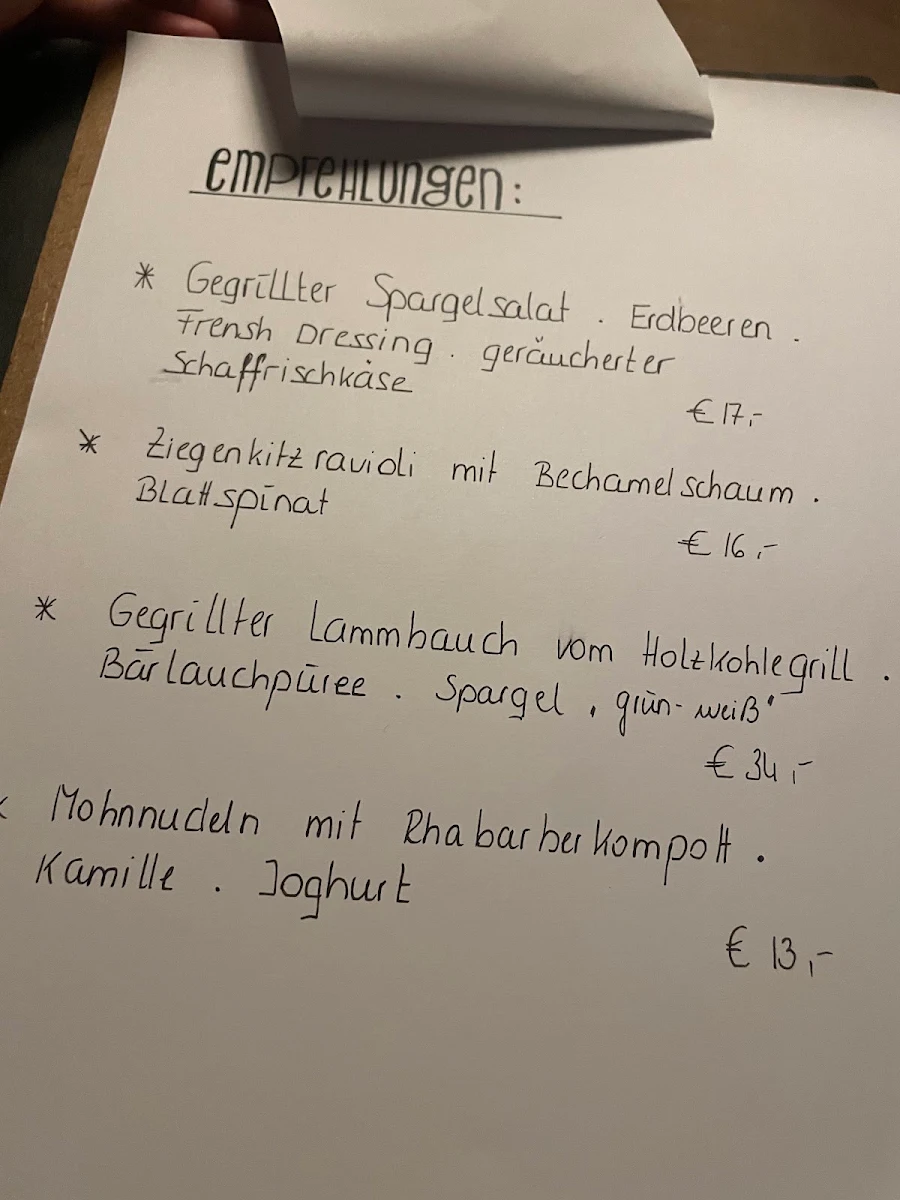 EMPFEHLUNGEN:
* Gegrillter Spargelsalat . Erdbeeren .
Frensh Dressing . geräucherter
Schaffrischkäse
€ 17,-
* Ziegenkitzravioli mit Bechamelschaum .
Blattspinat
€ 16,-
* Gegrillter Lammbauch vom Holzkohlegrill .
Bärlauchpüree . Spargel , grün-weiß'
€ 34,-
* Mohnnudeln mit Rhabarberkompott .
Kamille . Joghurt
€ 13,-